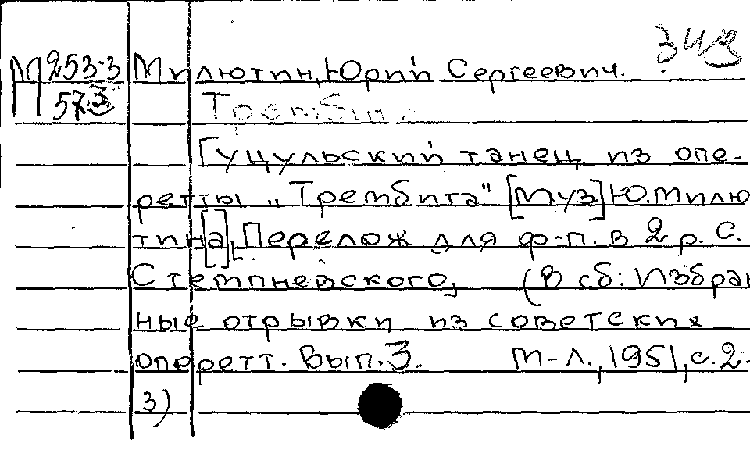 М 253-3 Милютин, Юрий Сергеевич.
57-3 Трембита
Гуцульский танец из опе-
ретты „Трембита" [Муз] Ю Милю
тин[а], Перелож для ф-п. в 2 р. С.
Стемпневского, (В сб: Избран
ные отрывки из советских
оперетт. Вып. 3. М-Л., 1951, с. 2-
3)